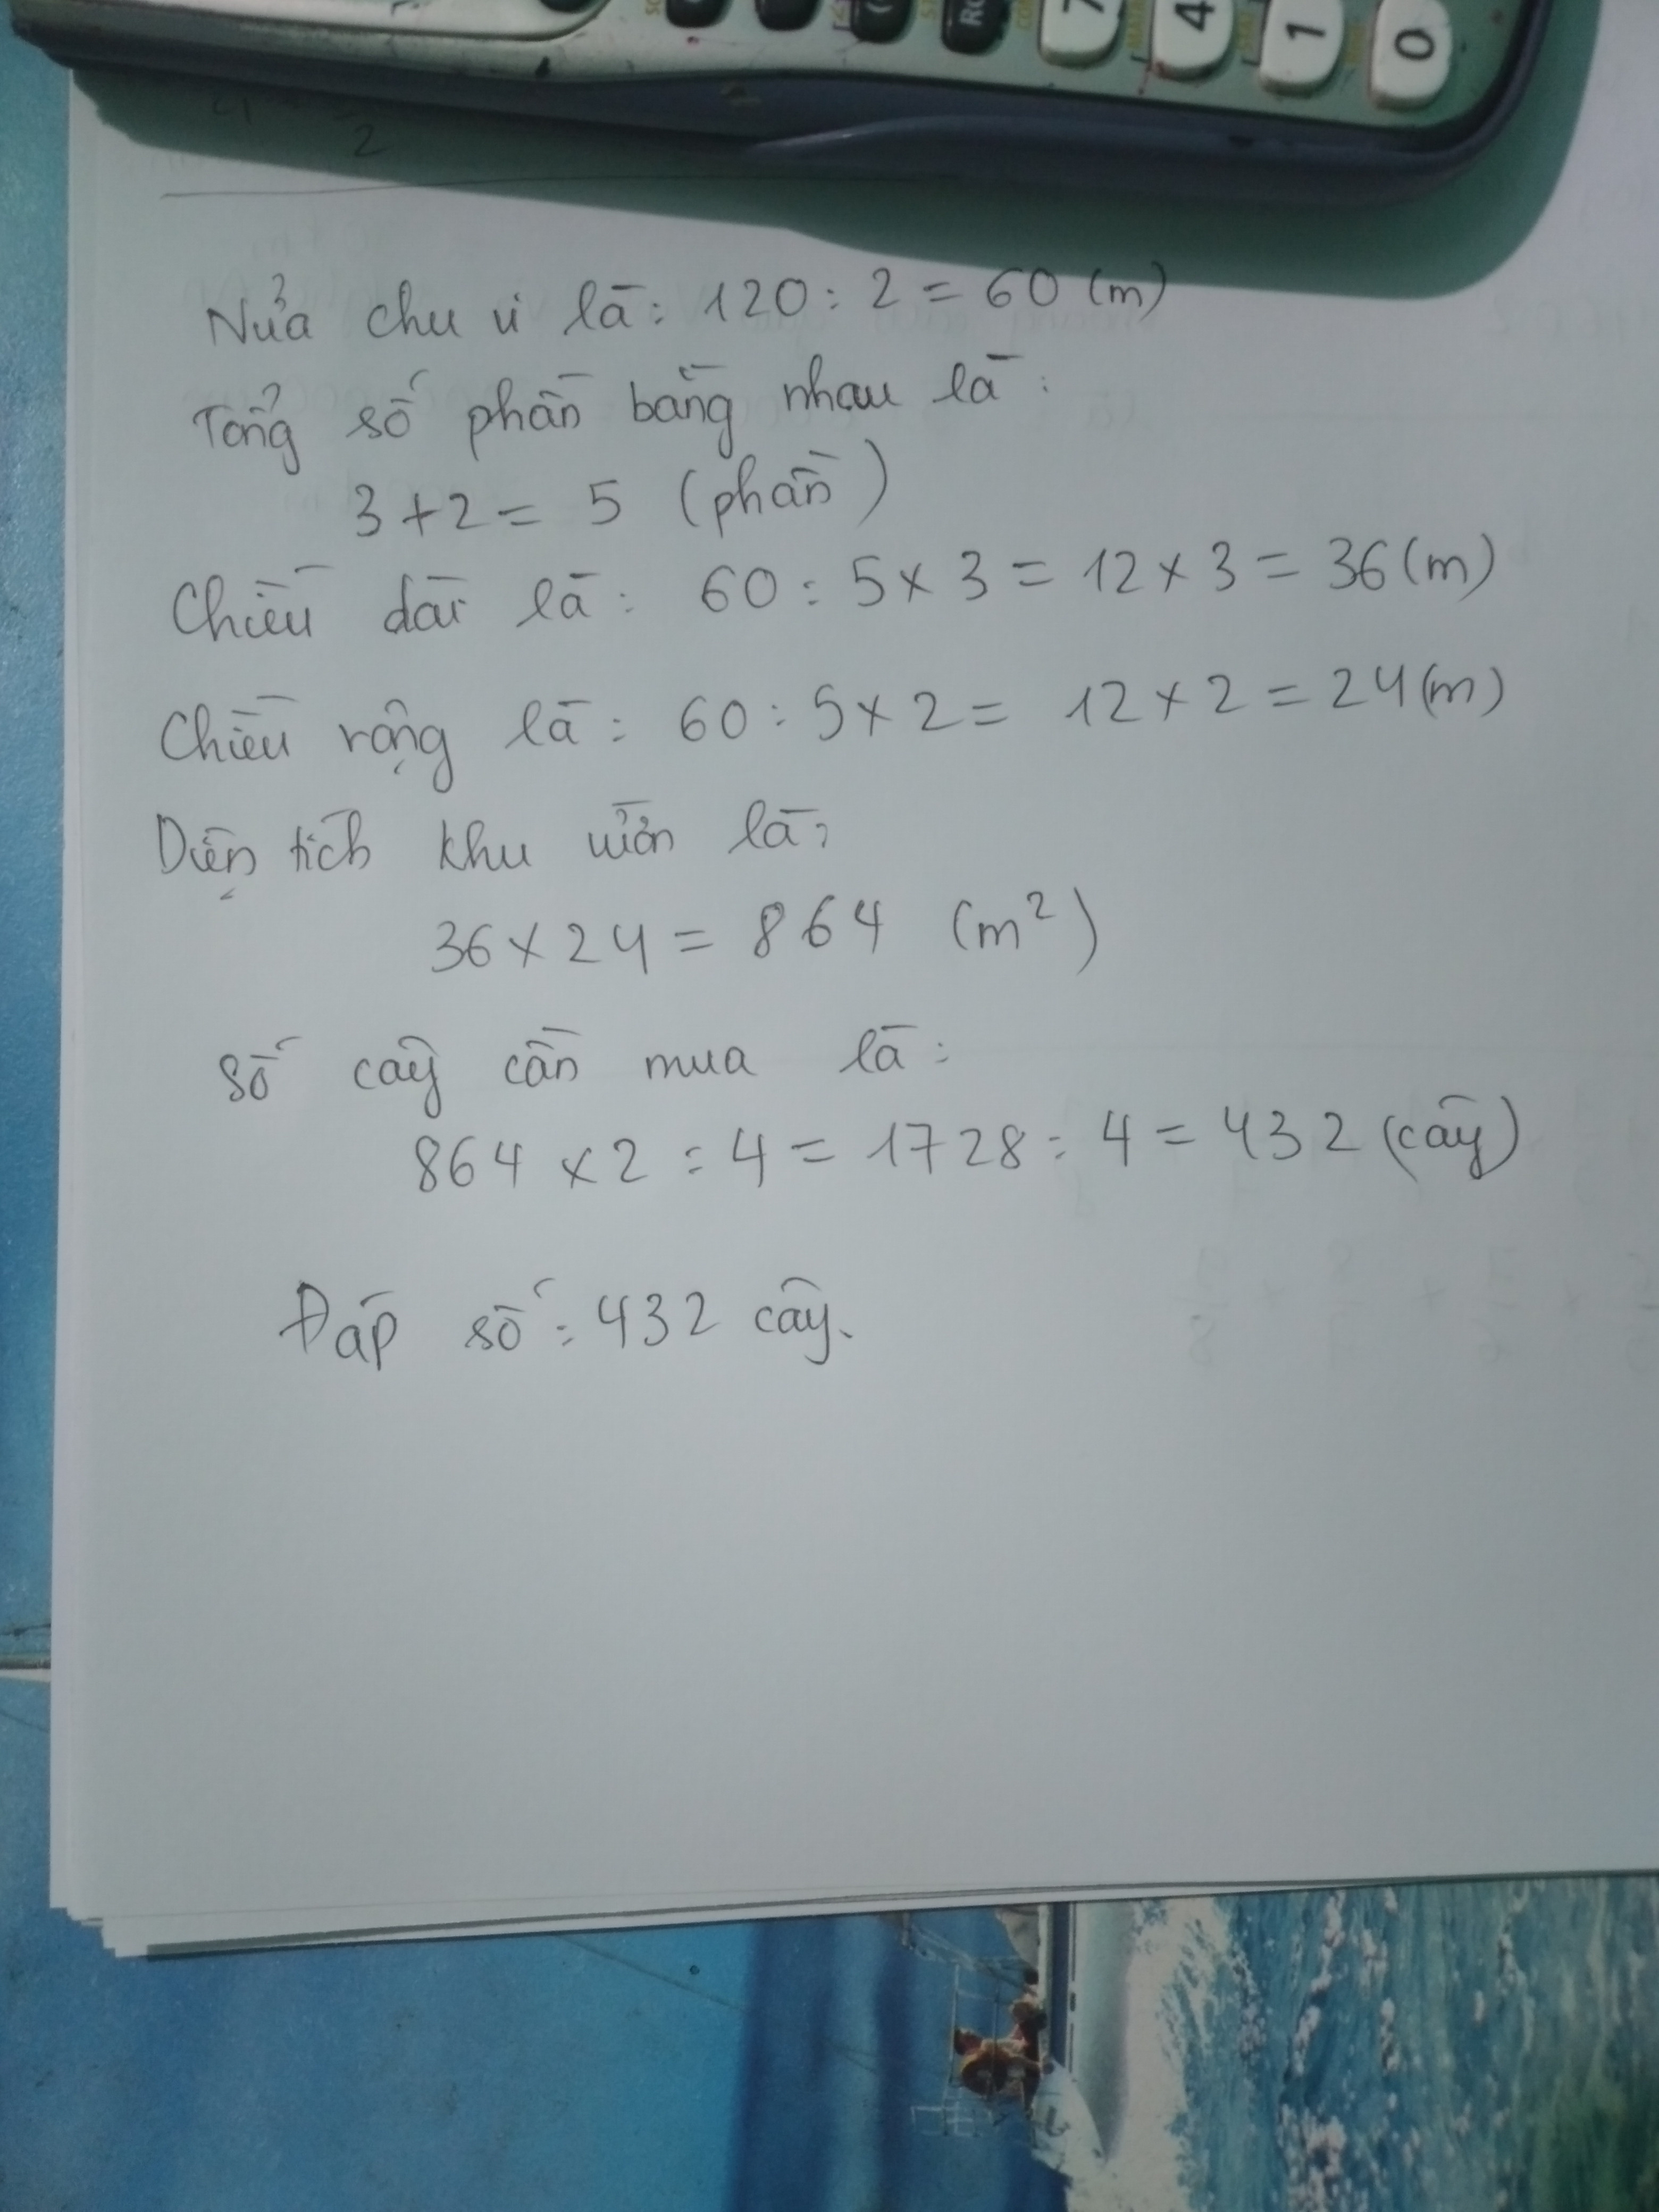 7 4 1 0
2
Nửa chu vi là: 120 : 2 = 60 (m)
Tổng số phần bằng nhau là:
3 + 2 = 5 (phần)
Chiều dài là: 60 : 5 × 3 = 12 × 3 = 36 (m)
Chiều rộng là: 60 : 5 × 2 = 12 × 2 = 24 (m)
Diện tích khu vườn là:
36 × 24 = 864 (m²)
Số cây cần mua là:
864 × 2 : 4 = 1728 : 4 = 432 (cây)
Đáp số: 432 cây.